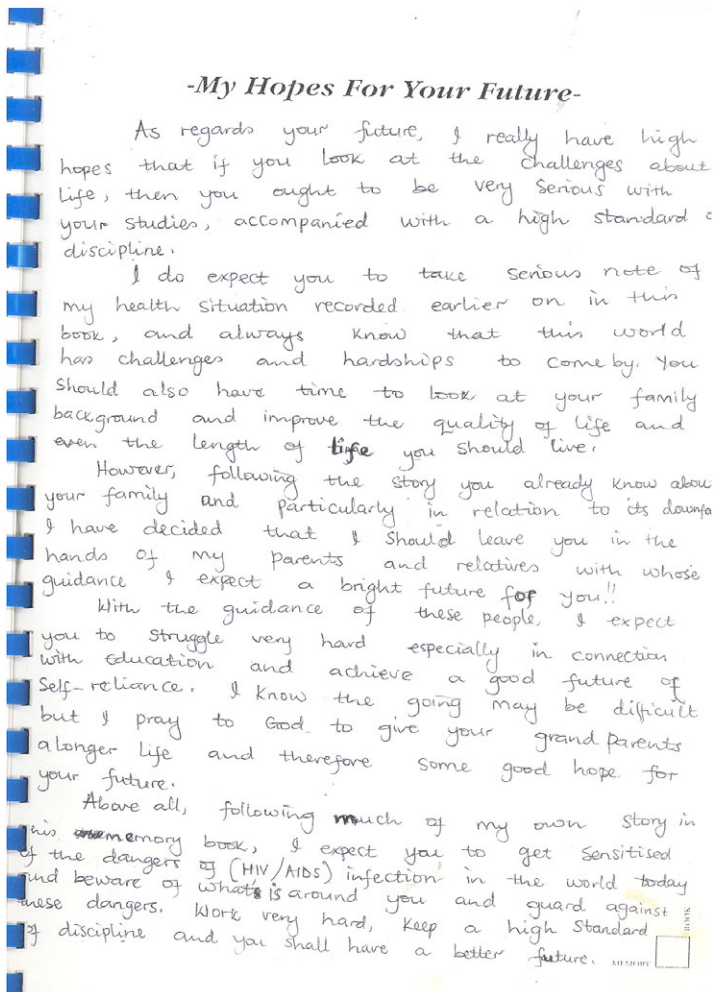 -My Hopes For Your Future-
As regards your future, I really have high
hopes that if you look at the challenges about
life, then you ought to be very serious with
your studies, accompanied with a high standard
discipline.
I do expect you to take serious note of
my health situation recorded earlier on in this
book, and always know that this world
has challenges and hardships to come by. You
should also have time to look at your family
background and improve the quality of life and
even the length of life you should live.
However, following the story you already know abou
your family and particularly in relation to its downfa
I have decided that I should leave you in the
hands of my parents and relatives with whose
guidance I expect a bright future for you!!
With the guidance of these people, I expect
you to struggle very hard especially in connection
with education and achieve a good future of
Self-reliance. I know the going may be difficult
but I pray to God to give your grand parents
a longer life and therefore some good hope for
your future.
Above all, following much of my own story in
his memory book, I expect you to get sensitised
of the dangers of (HIV/AIDS) infection in the world today
and beware of what's is around you and guard against
hese dangers. Work very hard, keep a high standard
of discipline and you shall have a better future.
MEMORY